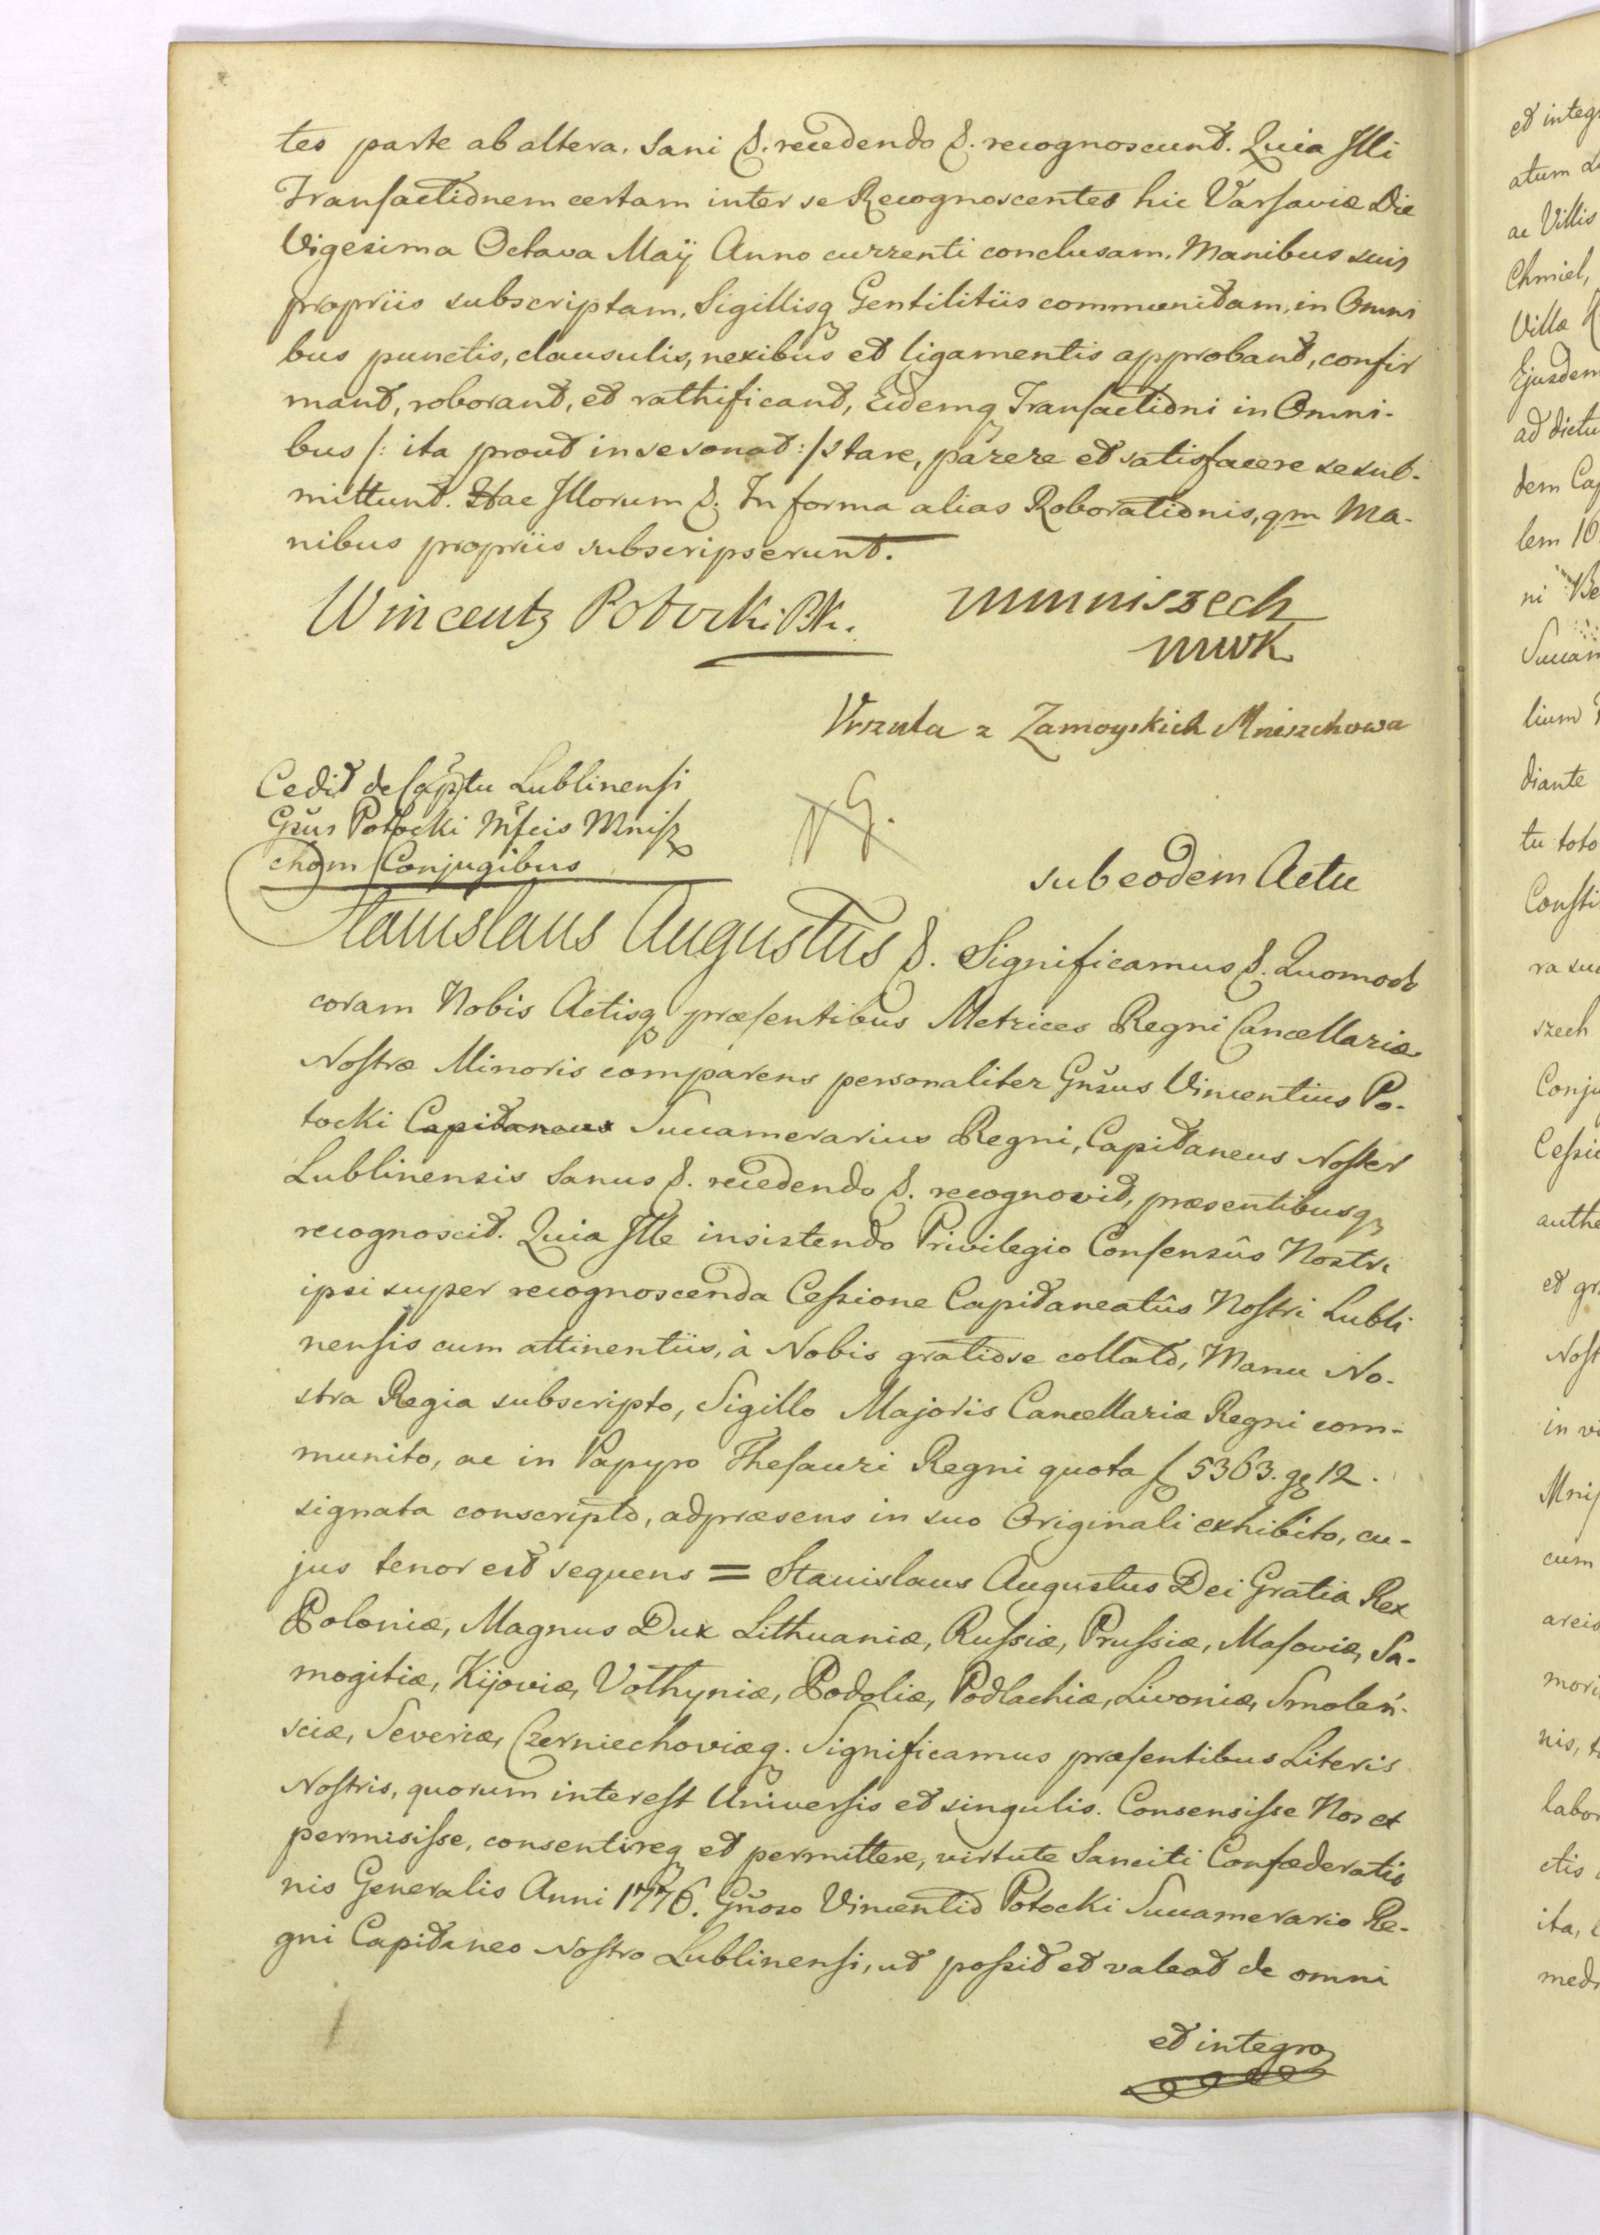 tes parte ab altera. Sani &. recedendo &. recognoscunt. Quia Illi
Transactionem certam inter se Recognoscentes hic Varsaviæ Die
Vigesima Octava Maÿ Anno currenti conclusam, Manibus suis
propriis subscriptam, Sigillisq Gentilitiis communitam, in Omni
bus punctis, clausulis, nexibus et ligamentis approbant, confir
mant, roborant, et rathificant, Eidemq Transactioni in Omni-
bus /: ita prout in se sonat :/ stare, parere et satisfacere se sub-
mittunt. Hac Illorum &. In forma alias Roborationis, qm Ma-
nibus propriis subscripserunt.
Wincenty Potocki PK.
MMniszech
MWK
Urszula z Zamoyskich Mniszchowa
Cedit de Captu Lublinensi
Gsus Potocki Mfcis Mnisz
chom Conjugibus
NG.
sub eodem Actu
Stanislaus Augustus &. Significamus &. Quomodo
coram Nobis Actisq præsentibus Metrices Regni Cancellariæ
Nostræ Minoris comparens personaliter Gnsus Vincentius Po-
tocki Capitaneus Succamerarius Regni, Capitaneus Noster
Lublinensis Sanus &. recedendo &. recognovit, præsentibusq
recognoscit. Quia Ille insistendo Privilegio Consensûs Nostri
ipsi super recognoscenda Cessione Capitaneatûs Nostri Lubli
nensis cum attinentiis, à Nobis gratiose collato, Manu No-
stra Regia subscripto, Sigillo Majoris Cancellariæ Regni com-
munito, ac in Papyro Thesauri Regni quota f 5363. gg 12.
signata conscripto, ad præsens in suo Originali exhibito, cu-
jus tenor est sequens = Stanislaus Augustus Dei Gratia Rex
Poloniæ, Magnus Dux Lithuaniæ, Russiæ, Prussiæ, Masoviæ, Sa-
mogitiæ, Kijoviæ, Volhyniæ, Podoliæ, Podlachiæ, Livoniæ, Smoleń-
sciæ, Severiæ, Czerniechoviæq. Significamus præsentibus Literis
Nostris, quorum interest Universis et singulis. Consensisse Nos et
permisisse, consentireq et permittere, virtute Sanciti Confæderatio
nis Generalis Anni 1776. Gñoso Vincentio Potocki Succamerario Re-
gni Capitaneo Nostro Lublinensi, ut possit et valeat de omni
et integro
et integ
atum
ac Villis
Chmiel,
Villæ
Ejusdem
ad dictu
dem Cap
lem 10
ni Be
Succam
lium
diante
tu toto
Consti
ra suc
szech
Conju
Cessio
authe
et gr
Nost
in vi
Mnis
cum
areis
mori
nis, t
labor
ctis
ita,
medi